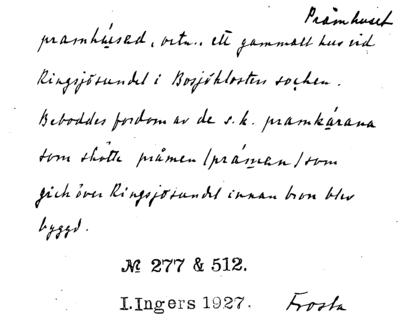 Pråmhuset
pramhúsed, ortn., ett gammalt hus vid
Ringsjösundet i Bosjöklosters socken.
Beboddes fordom av de s.k. pramkárana
som skötte pråmen /práman/ som
gick över Ringsjösundet innan bron blev
byggd.
№ 277 & 512.
I.Ingers 1927. Frosta